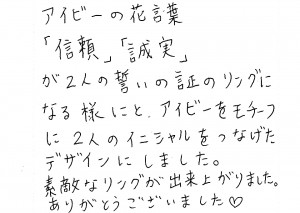 アイビーの花言葉
「信頼」「誠実」
が2人の誓いの証のリングに
なる様にと、アイビーをモチーフ
に2人のイニシャルをつなげた
デザインにしました。
素敵なリングが出来上がりました。
ありがとうございました♡